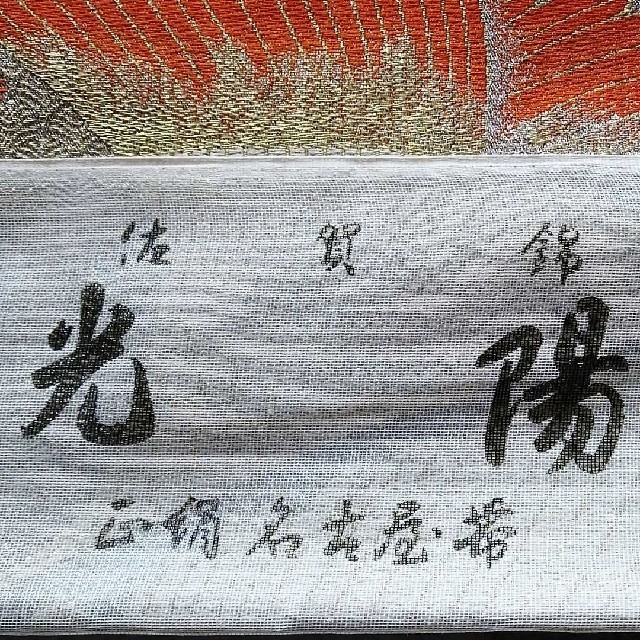 佐賀錦
光陽
正絹名古屋帯